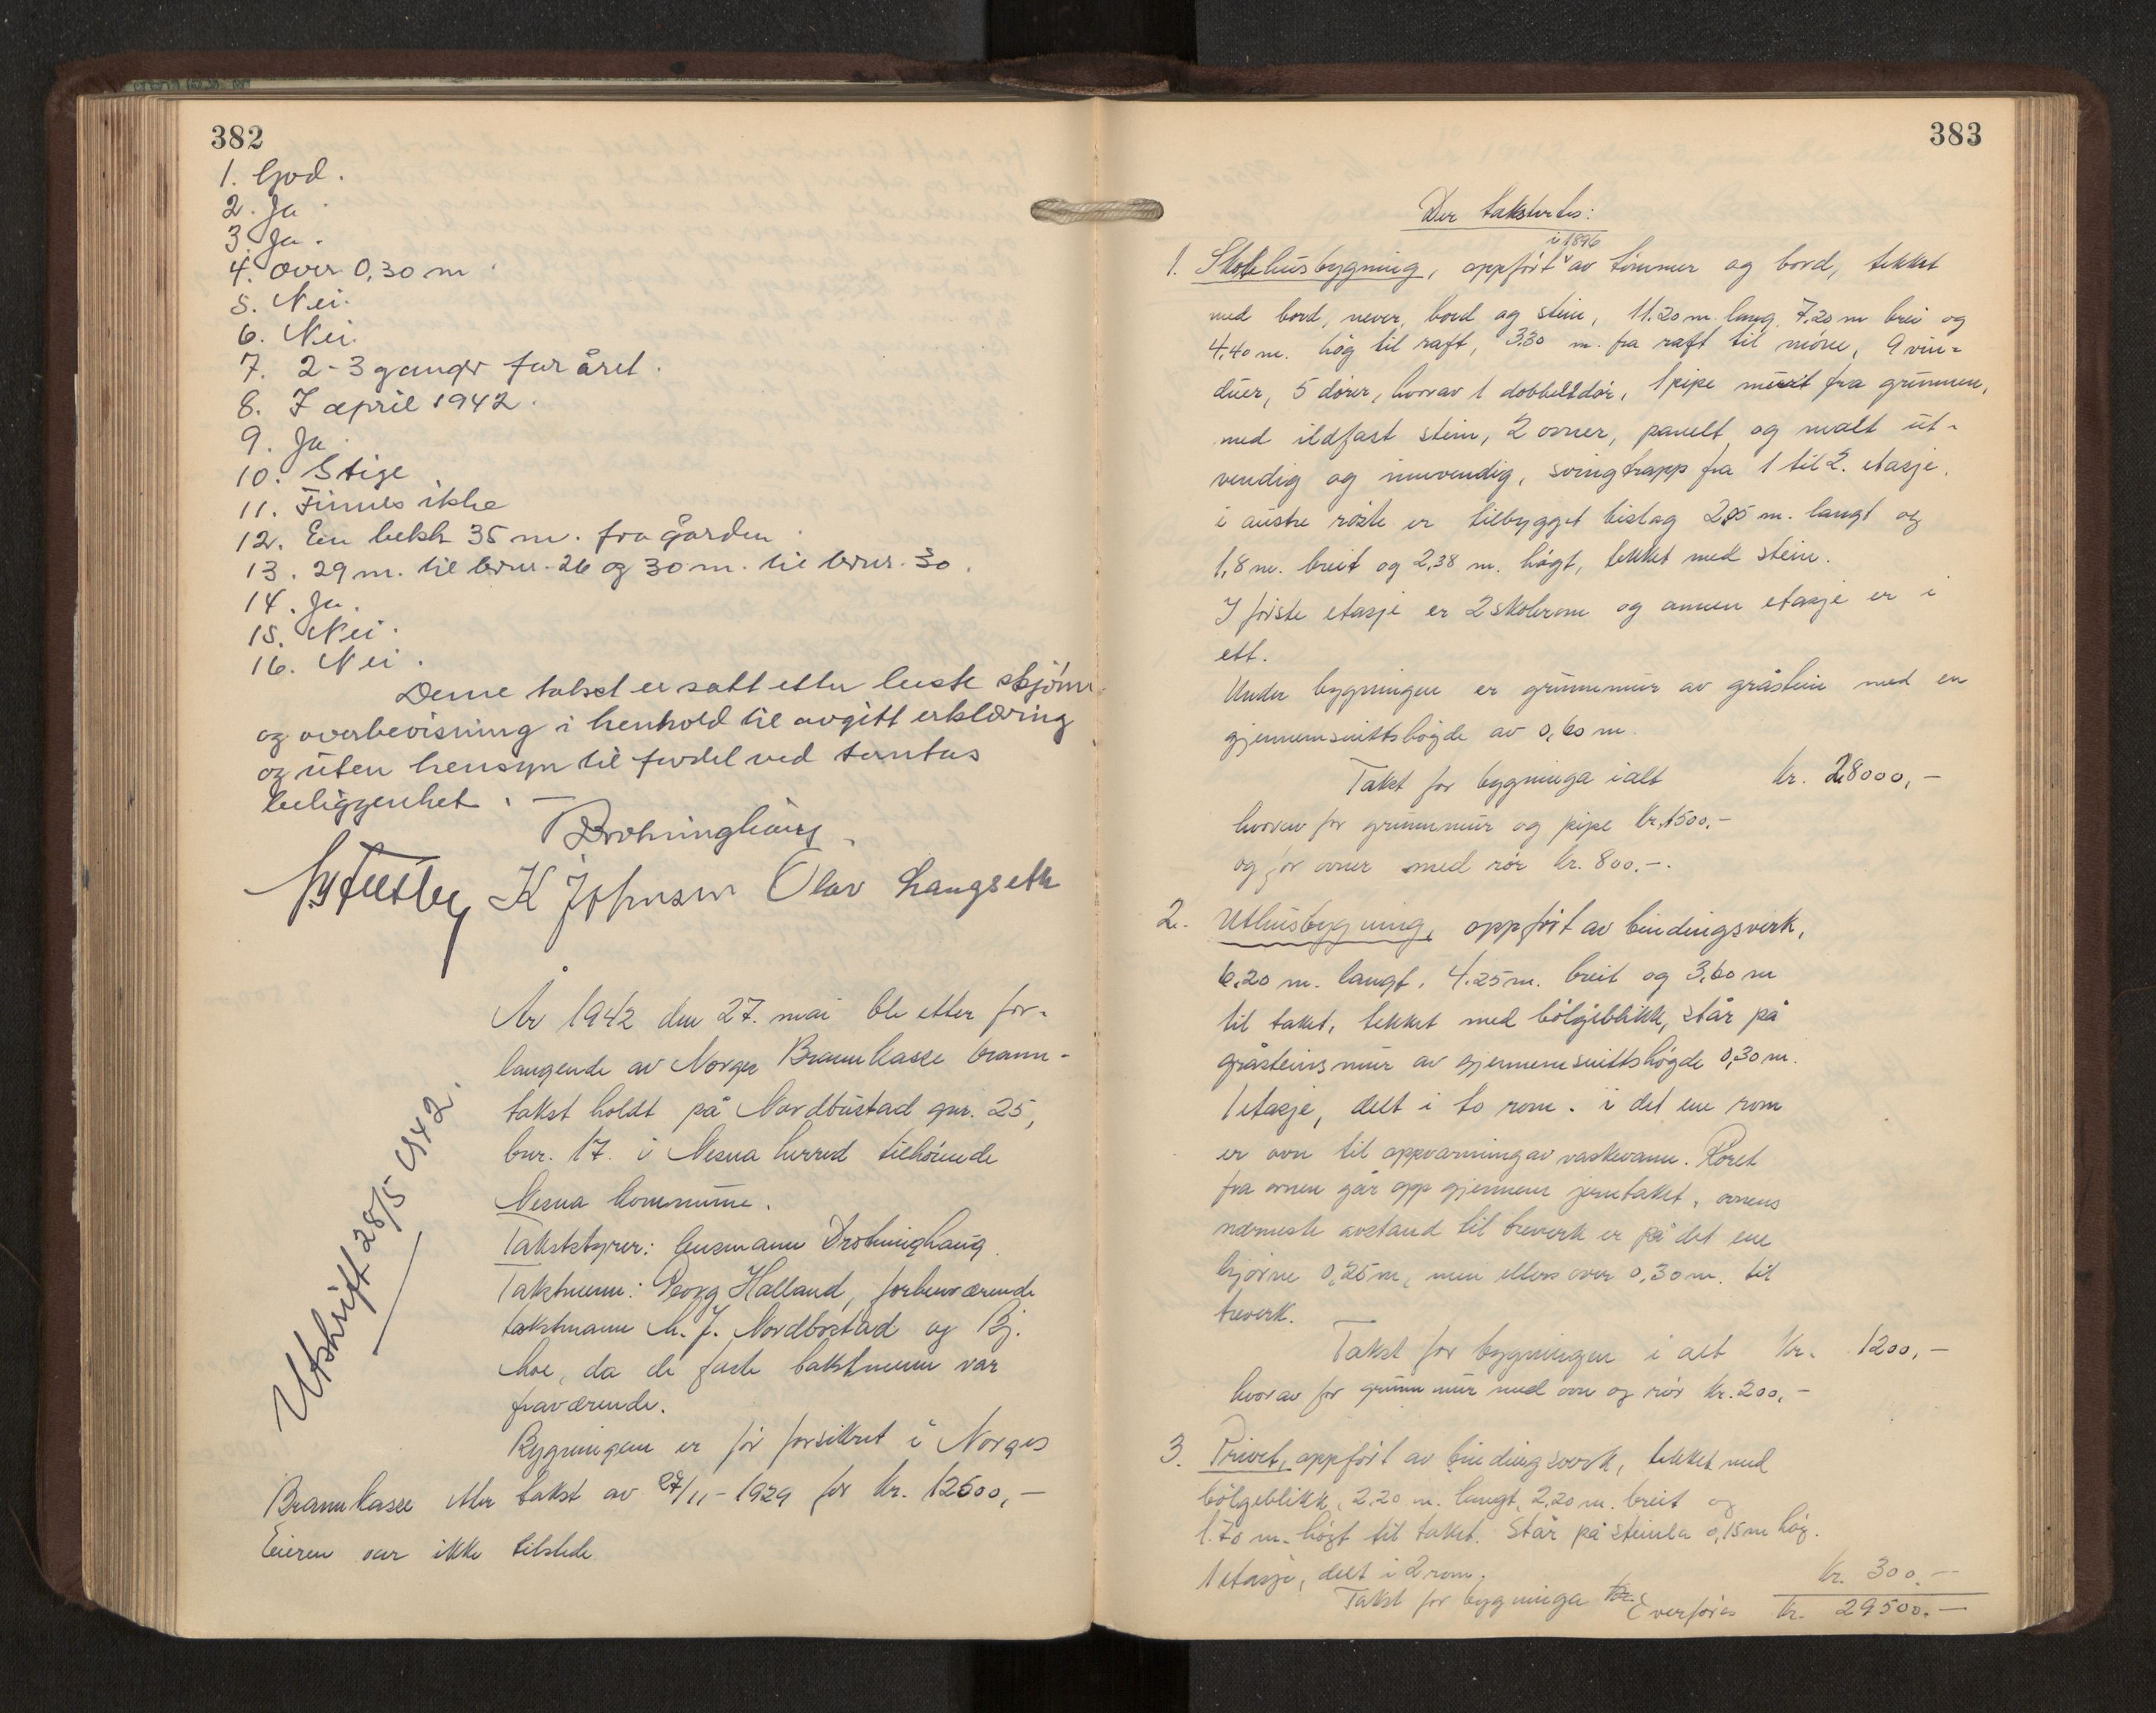 382
1. God.
2. Ja
3. Ja.
4. over 0,30 m
5. Nei.
6. Nei.
7. 2-3 ganger for året.
8. 7 april 1942.
9. Ja
10. Stige
11. Finnes ikke
12. Ein bekk 35 m. fra gården
13. 29 m. til brnr. 26 og 30 m. til brnr. 30.
14. Ja.
15. Nei.
16. Nei.
Denne takst er satt etter beste skjønn
og overbevisning i henhold til avgitt erklæring
og uten hensyn til fordel ved tomtas
beliggenhet. —
Drotninghaug
K Johnsen Olav Langseth
År 1942 den 27. mai ble etter for-
langende av Norges Brannkasse brann-
takst holdt på Nordbustad gnr. 25,
bnr. 17. i Nesna herred tilhørende
Nesna kommune.
Takststyrer: lensmann Drotninghaug.
Takstmenn: Georg Halland, forhenværende
takstmann M. J. Nordbostad og Bj.
Moe, da de faste takstmenn var
fraværende.
Bygningen er før forsikret i Norges
Brannkasse etter takst av 27/11-1929 for kr. 12600,-
Eieren var ikke tilstede
Utskrift 28/5 1942.
383
Der takstertes:
1. Skolehusbygning, oppført i 1896 av tømmer og bord, tekket
med bord, never, bord og stein, 11.20 m. lang, 7.20 m brei og
4,40 m. høg til raft, 3.30 m. fra raft til møne, 9 vin-
duer, 5 dører, hvorav 1 dobbeltdør, 1 pipe murt fra grunnen,
med ildfast stein, 2 ovner, panelt og malt ut-
vendig og innvendig, svingtrapp fra 1 til 2. etasje.
i austre røste er tilbygget bislag 2,05 m. langt og
1,8 m. breit og 2,38 m. høgt, tekket med stein.
I første etasje er 2 skolerom og annen etasje er i
ett.
Under bygningen er grunnmur av gråstein med en
gjennemsnittshøgde av 0,60 m.
Takst for bygninga ialt kr. 28000,-
hvorav for grunnmur og pipe kr. 1500.-
og for ovner med rør kr. 800.-.
2. Uthusbygning, oppført av bindingsverk,
6,20 m. langt, 4.25 m. breit og 3,60 m
til taket, tekket med bølgeblikk, står på
gråsteinsmur av gjennemsnittshøgde 0,30 m.
1 etasje, delt i to rom. i det ene rom
er ovn til oppvarming av vaskevann. Røret
fra ovnen går opp gjennem jerntaket, ovnens
nærmeste avstand til treverk er på det ene
hjørne 0,25 m, men ellers over 0,30 m. til
treverk.
Takst for bygningen i alt kr. 1200,-
hvorav for grunnmur med ovn og rør kr. 200,-
3. Privet, oppført av bindingsverk, tekket med
bølgeblikk, 2,20 m. langt, 2,20 m. breit og
1.70 m. høgt til taket. Står på steinla 0,15 m høg.
1 etasje, delt i 2 rom.
Takst for bygninga kr. 300.-
Overføres kr. 29500.-